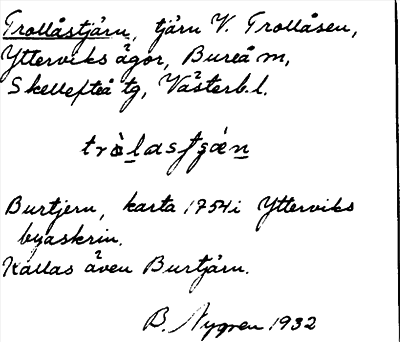 Trollåstjärn, tjärn V. Trollåsen,
Ytterviks ägor, Bureå m,
Skellefteå tg, Västerb.l.
trò̀lastjǽn
Burtjern, karta 1754 i Ytterviks
byaskrin.
Kallas även Burtjärn.
B. Nygren 1932